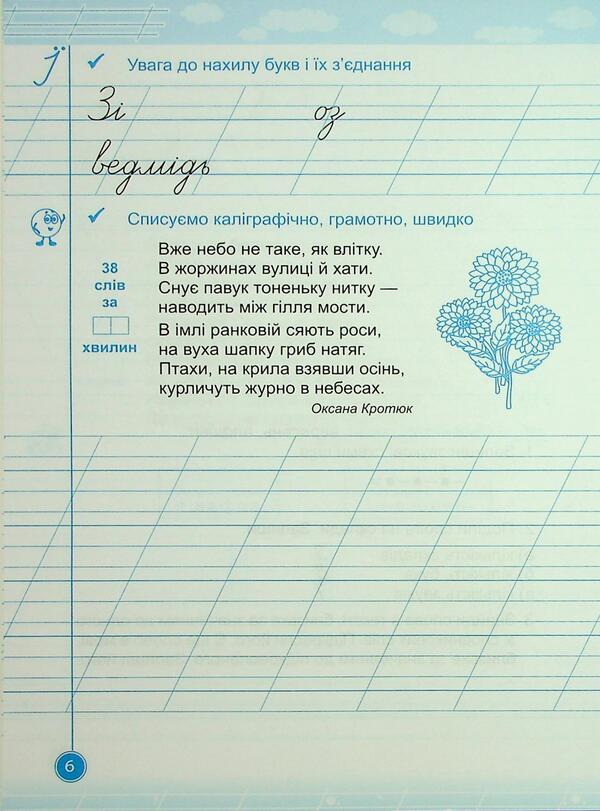 Ї
Увага до нахилу букв і їх з’єднання
Зі оз
ведмідь
Списуємо каліграфічно, грамотно, швидко
38
слів
за
хвилин
Вже небо не таке, як влітку.
В жоржинах вулиці й хати.
Снує павук тоненьку нитку —
наводить між гілля мости.
В імлі ранковій сяють роси,
на вуха шапку гриб натяг.
Птахи, на крила взявши осінь,
курличуть журно в небесах.
Оксана Кротюк
6